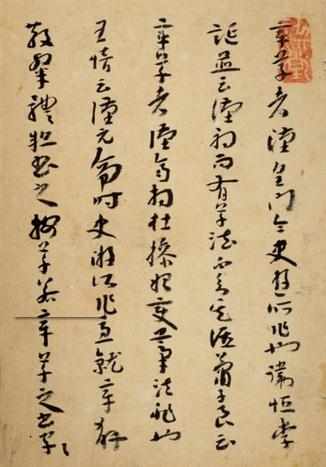 章草者漢黃門令史游所作也衛恒李
誕並云漢初而有草法不知其誰蕭子良云
章草者漢齊相杜操始變藁法非也
王愔云漢元帝時史游作急就章解
散隸體粗書之 章草之書字〻